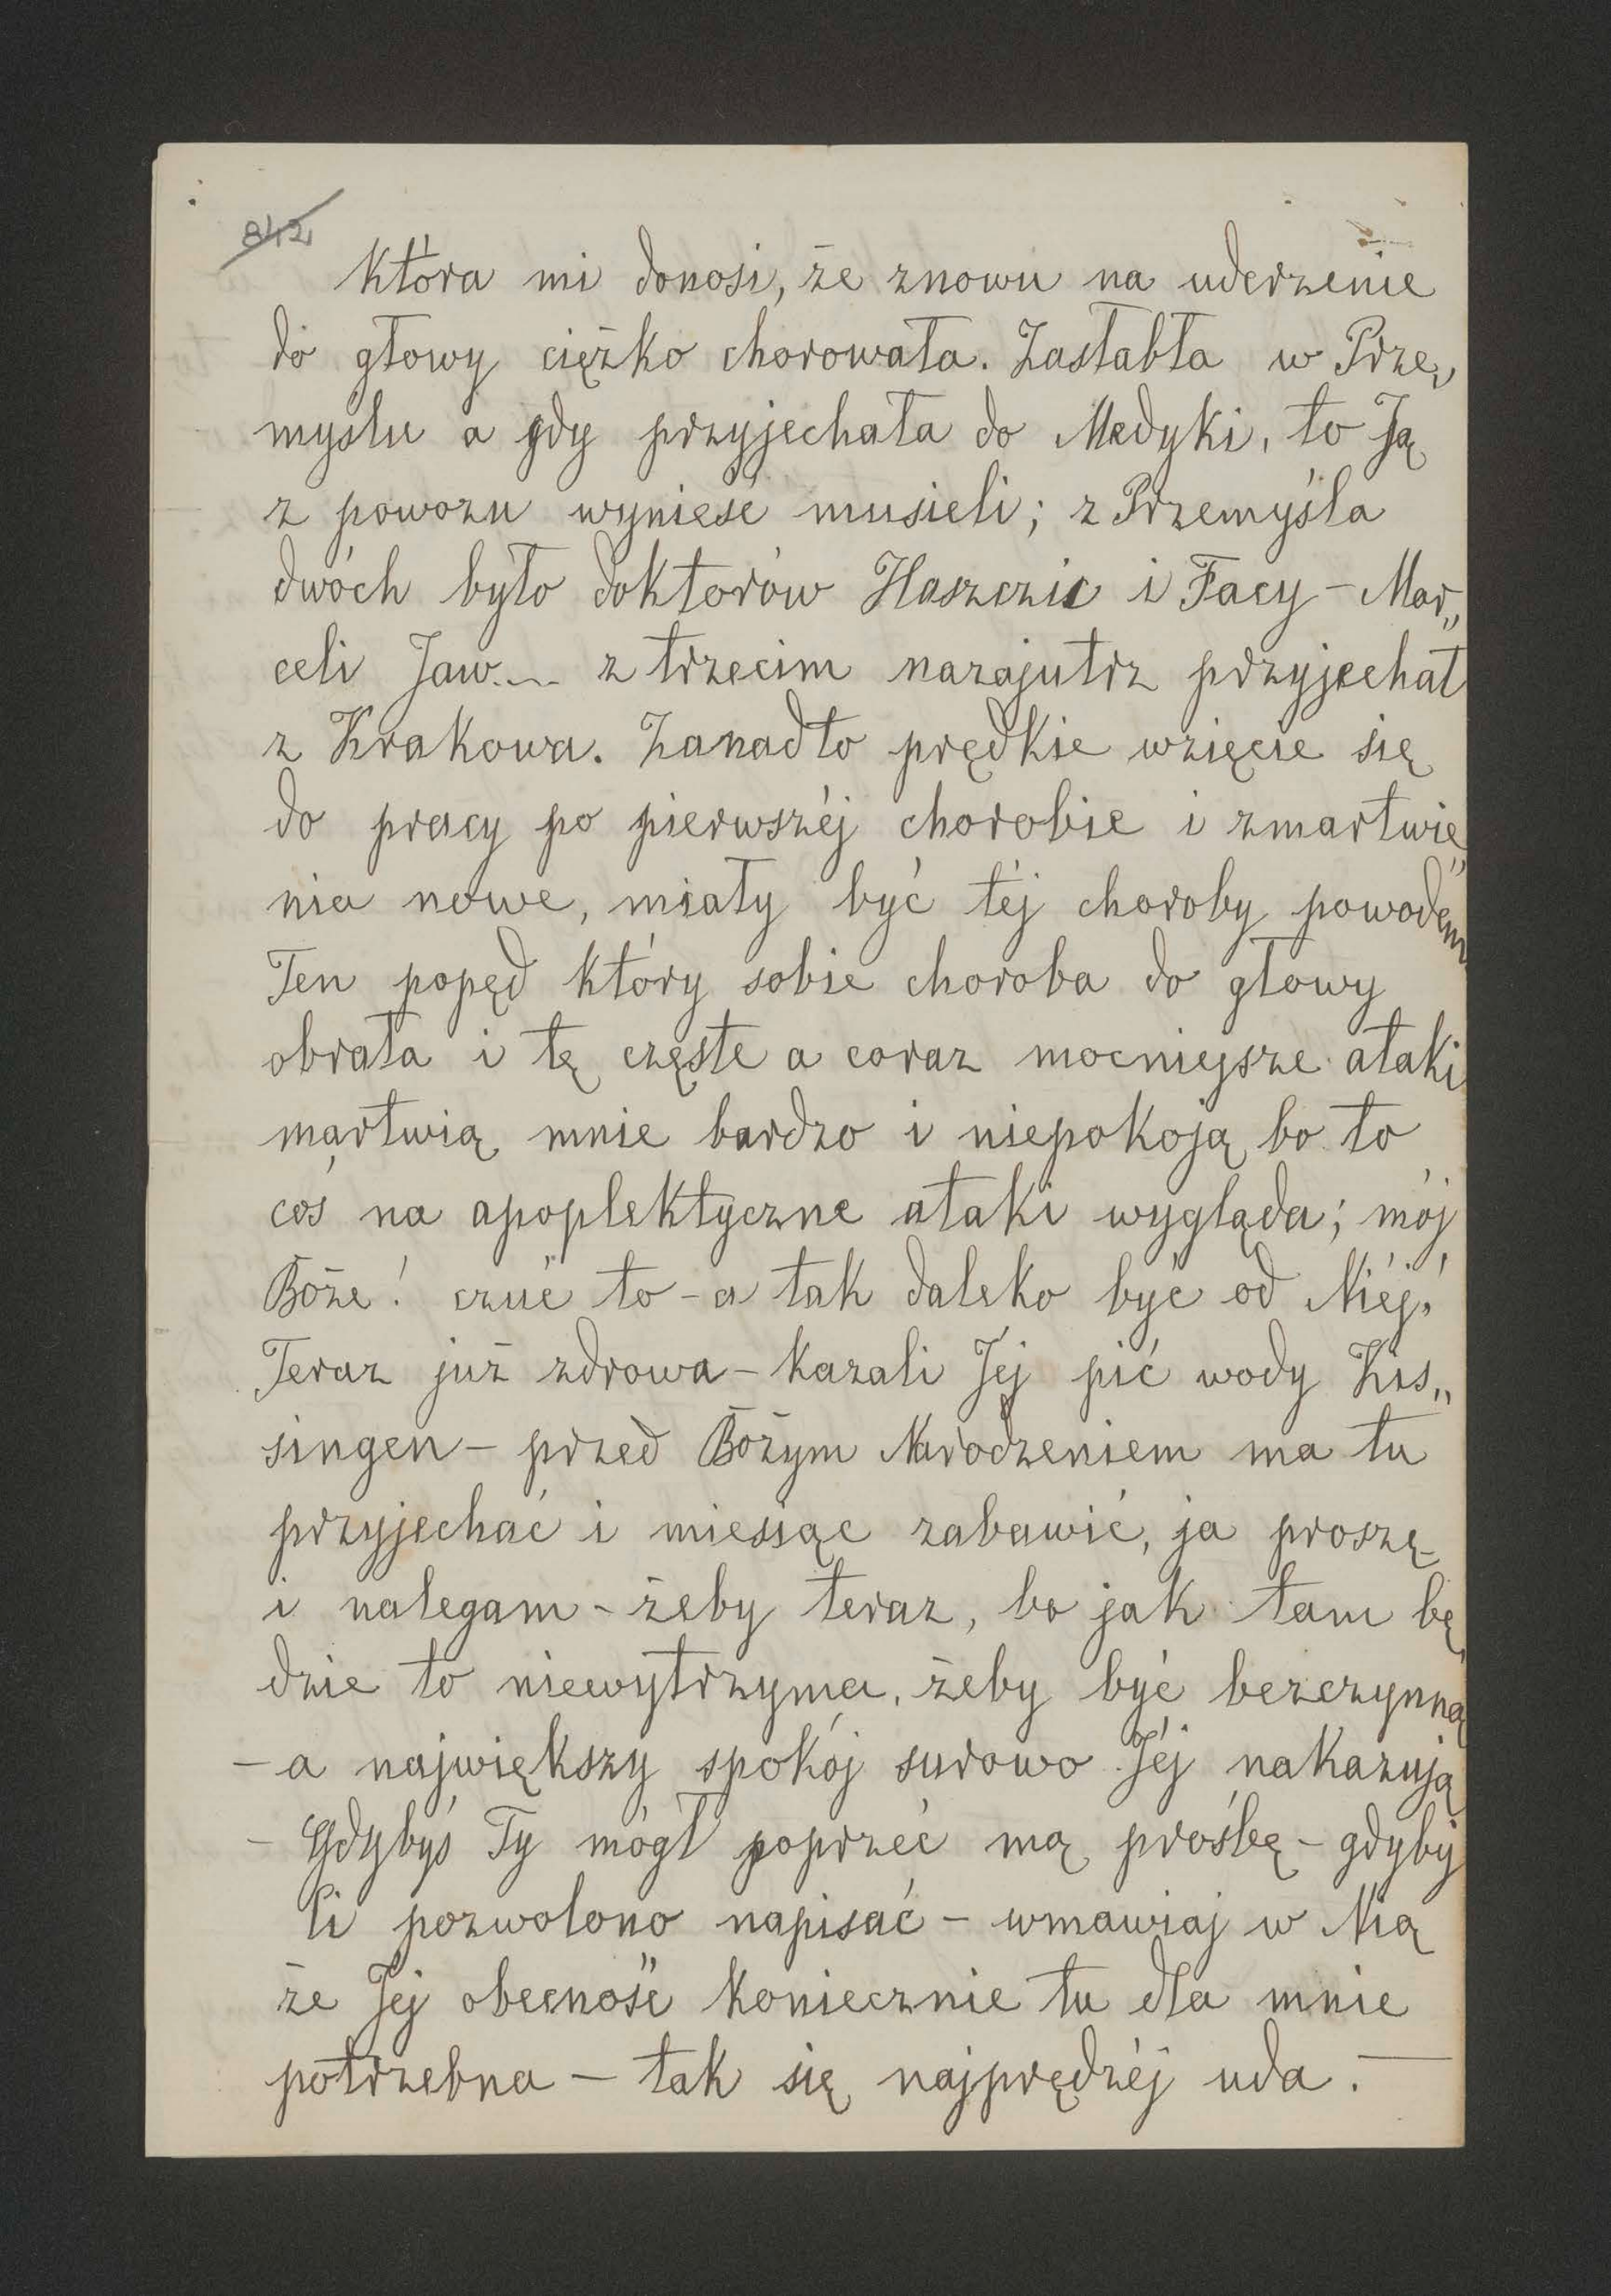 842
która mi donosi, że znowu na uderzenie
do głowy ciężko chorowała. Zasłabła w Prze„
myślu a gdy przyjechała do Medyki, to Ją
z powozu wynieść musieli; z Przemyśla
dwóch było doktorów Haszczic i Facy – Mar„
celi Jaw... z trzecim nazajutrz przyjechał
z Krakowa. Zanadto prędkie wzięcie się
do pracy po pierwszéj chorobie i zmartwie„
nia nowe, miały być téj choroby powodem
Ten popęd który sobie choroba do głowy
obrała i tę częste a coraz mocniejsze ataki
martwią mnie bardzo i niepokoją bo to
coś na apoplektyczne ataki wygląda; mój
Boże! czuć to – a tak daleko być od Niéj!
Teraz już zdrowa – kazali Jéj pić wody Kis„
singen – przed Bożym Narodzeniem ma tu
przyjechać i miesiąc zabawić, ja proszę
i nalegam – żeby teraz, bo jak tam bę
dzie to niewytrzyma, żeby być bezczynną
– a największy spokój surowo Jéj nakazują
– Gdybyś Ty mógł poprzeć mą prośbę – gdyby
Ci pozwolono napisać – wmawiaj w Nią
że Jéj obecność koniecznie tu dla mnie
potrzebna – tak się najprędzéj uda. —